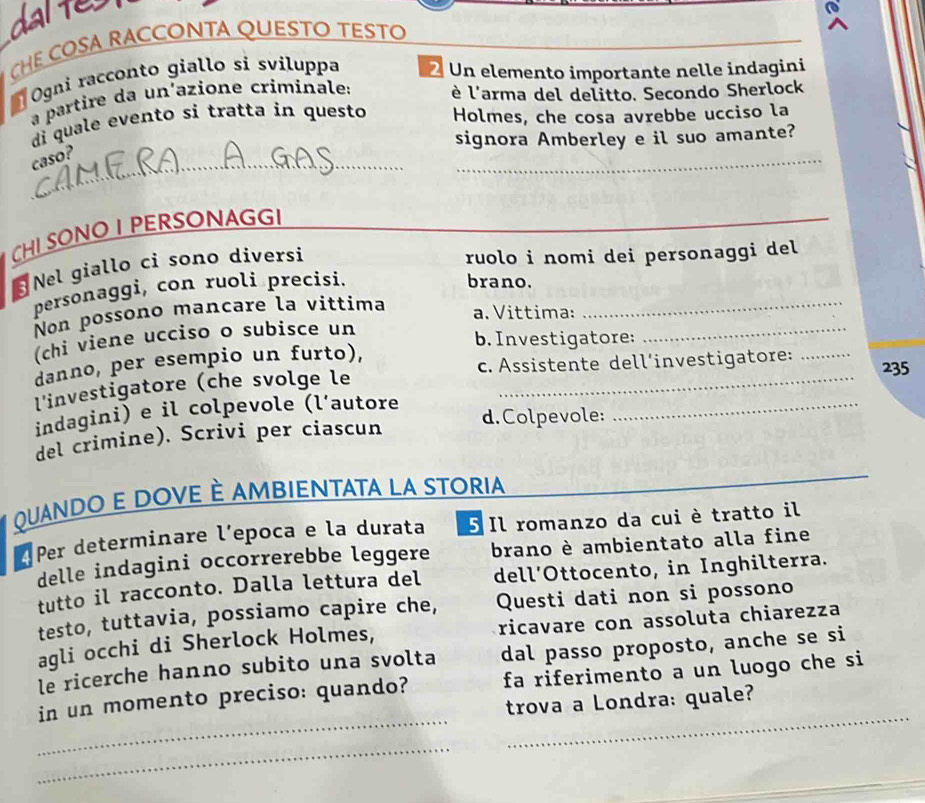 dal
CHE COSA RACCONTA QUESTO TESTO
1 Ogni racconto giallo si sviluppa
a partire da un'azione criminale:
di quale evento si tratta in questo
caso?
CAMERA A GAS
2 Un elemento importante nelle indagini
è l'arma del delitto. Secondo Sherlock
Holmes, che cosa avrebbe ucciso la
signora Amberley e il suo amante?
CHI SONO I PERSONAGGI
3 Nel giallo ci sono diversi
personaggi, con ruoli precisi.
Non possono mancare la vittima
(chi viene ucciso o subisce un
danno, per esempio un furto),
l'investigatore (che svolge le
indagini) e il colpevole (l'autore
del crimine). Scrivi per ciascun
ruolo i nomi dei personaggi del
brano.
a. Vittima:
b. Investigatore:
c. Assistente dell'investigatore:
d. Colpevole:
235
QUANDO E DOVE È AMBIENTATA LA STORIA
4 Per determinare l'epoca e la durata
delle indagini occorrerebbe leggere
tutto il racconto. Dalla lettura del
testo, tuttavia, possiamo capire che,
agli occhi di Sherlock Holmes,
le ricerche hanno subito una svolta
in un momento preciso: quando?
5 Il romanzo da cui è tratto il
brano è ambientato alla fine
dell'Ottocento, in Inghilterra.
Questi dati non si possono
ricavare con assoluta chiarezza
dal passo proposto, anche se si
fa riferimento a un luogo che si
trova a Londra: quale?